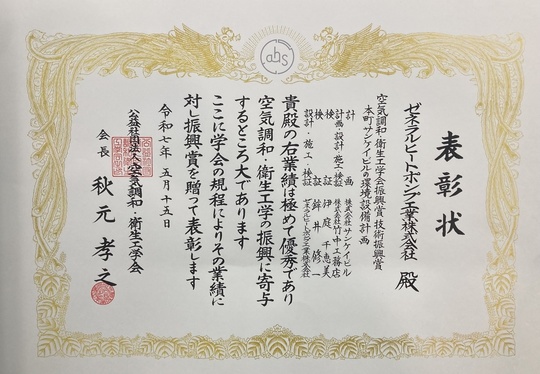 ahs
表彰状
ゼネラルヒートポンプ工業株式会社 殿
空気調和・衛生工学会振興賞 技術振興賞
本町サンケイビルの環境設備計画
計画 株式会社サンケイビル
計画・設計・施工・検証 株式会社竹中工務店
検証 伊庭千恵美
検証 鉾井修一
設計・施工・検証 ゼネラルヒートポンプ工業株式会社
貴殿の右業績は極めて優秀であり
空気調和・衛生工学の振興に寄与
するところ大であります
ここに学会の規程によりその業績に
対し振興賞を贈って表彰します
令和七年 五月十五日
公益社団法人 空気調和・衛生工学会
会長 秋元孝之